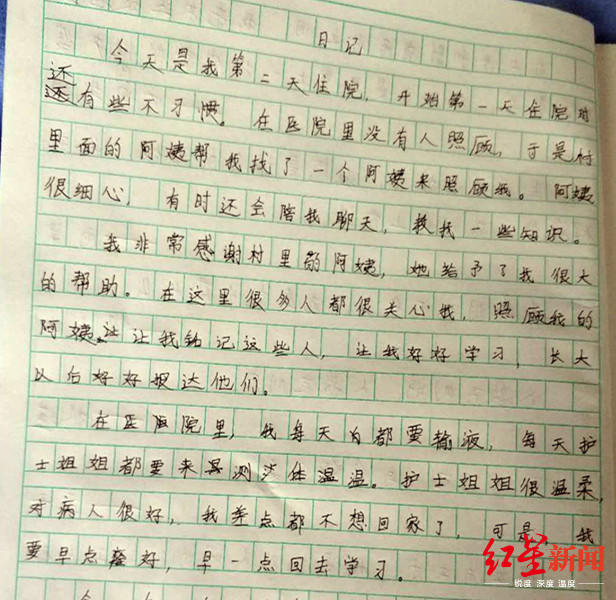 日记
今天是我第二天住院，开始第一天住院时
还
还有些不习惯。在医院里没有人照顾，于是村
里面的阿姨帮我找了一个阿姨来照顾我。阿姨
很细心，有时还会陪我聊天，教我一些知识。
我非常感谢村里的阿姨，她给予了我很大
的帮助。在这里很多人都很关心我，照顾我的
阿姨让我铭记这些人，让我好好学习，长大
以后好好报达他们。
在医院里，我每天都要输液，每天护
士姐姐都要来测体温。护士姐姐很温柔，
对病人很好，我差点都不想回家了，可是我
要早点好，早一点回去学习。
红星新闻
锐度 深度 温度